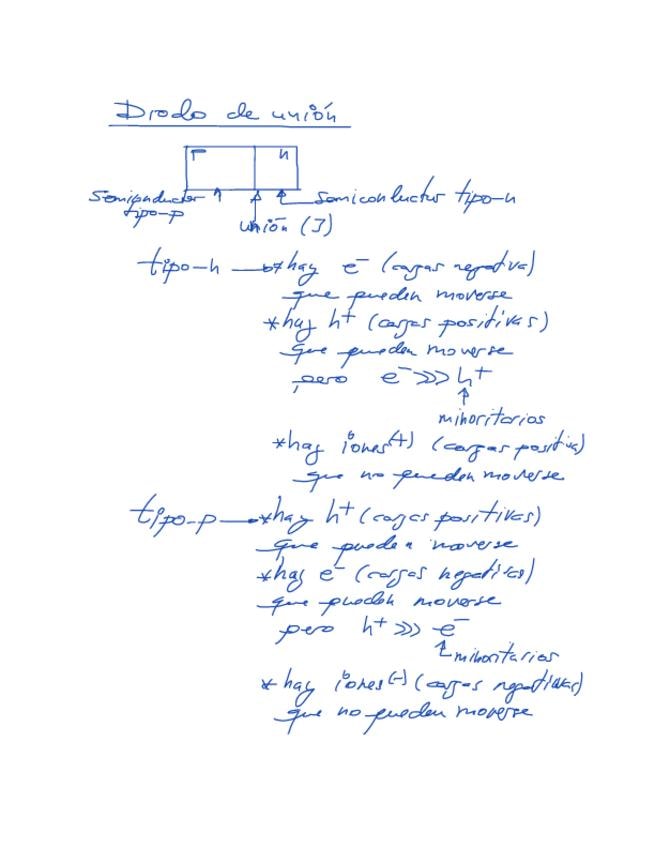 Diodo de unión
p n
Semiconductor tipo-p
semiconductor tipo-n
unión (J)
tipo-n → * hay e⁻ (cargas negativa)
que pueden moverse
* hay h⁺ (cargas positivas)
que pueden moverse
pero e⁻ >>> h⁺
minoritarios
* hay iones(+) (cargas positiva)
que no pueden moverse
tipo-p → * hay h⁺ (cargas positivas)
que pueden moverse
* hay e⁻ (cargas negativas)
que pueden moverse
pero h⁺ >>> e⁻
minoritarios
* hay iones(-) (cargas negativas)
que no pueden moverse